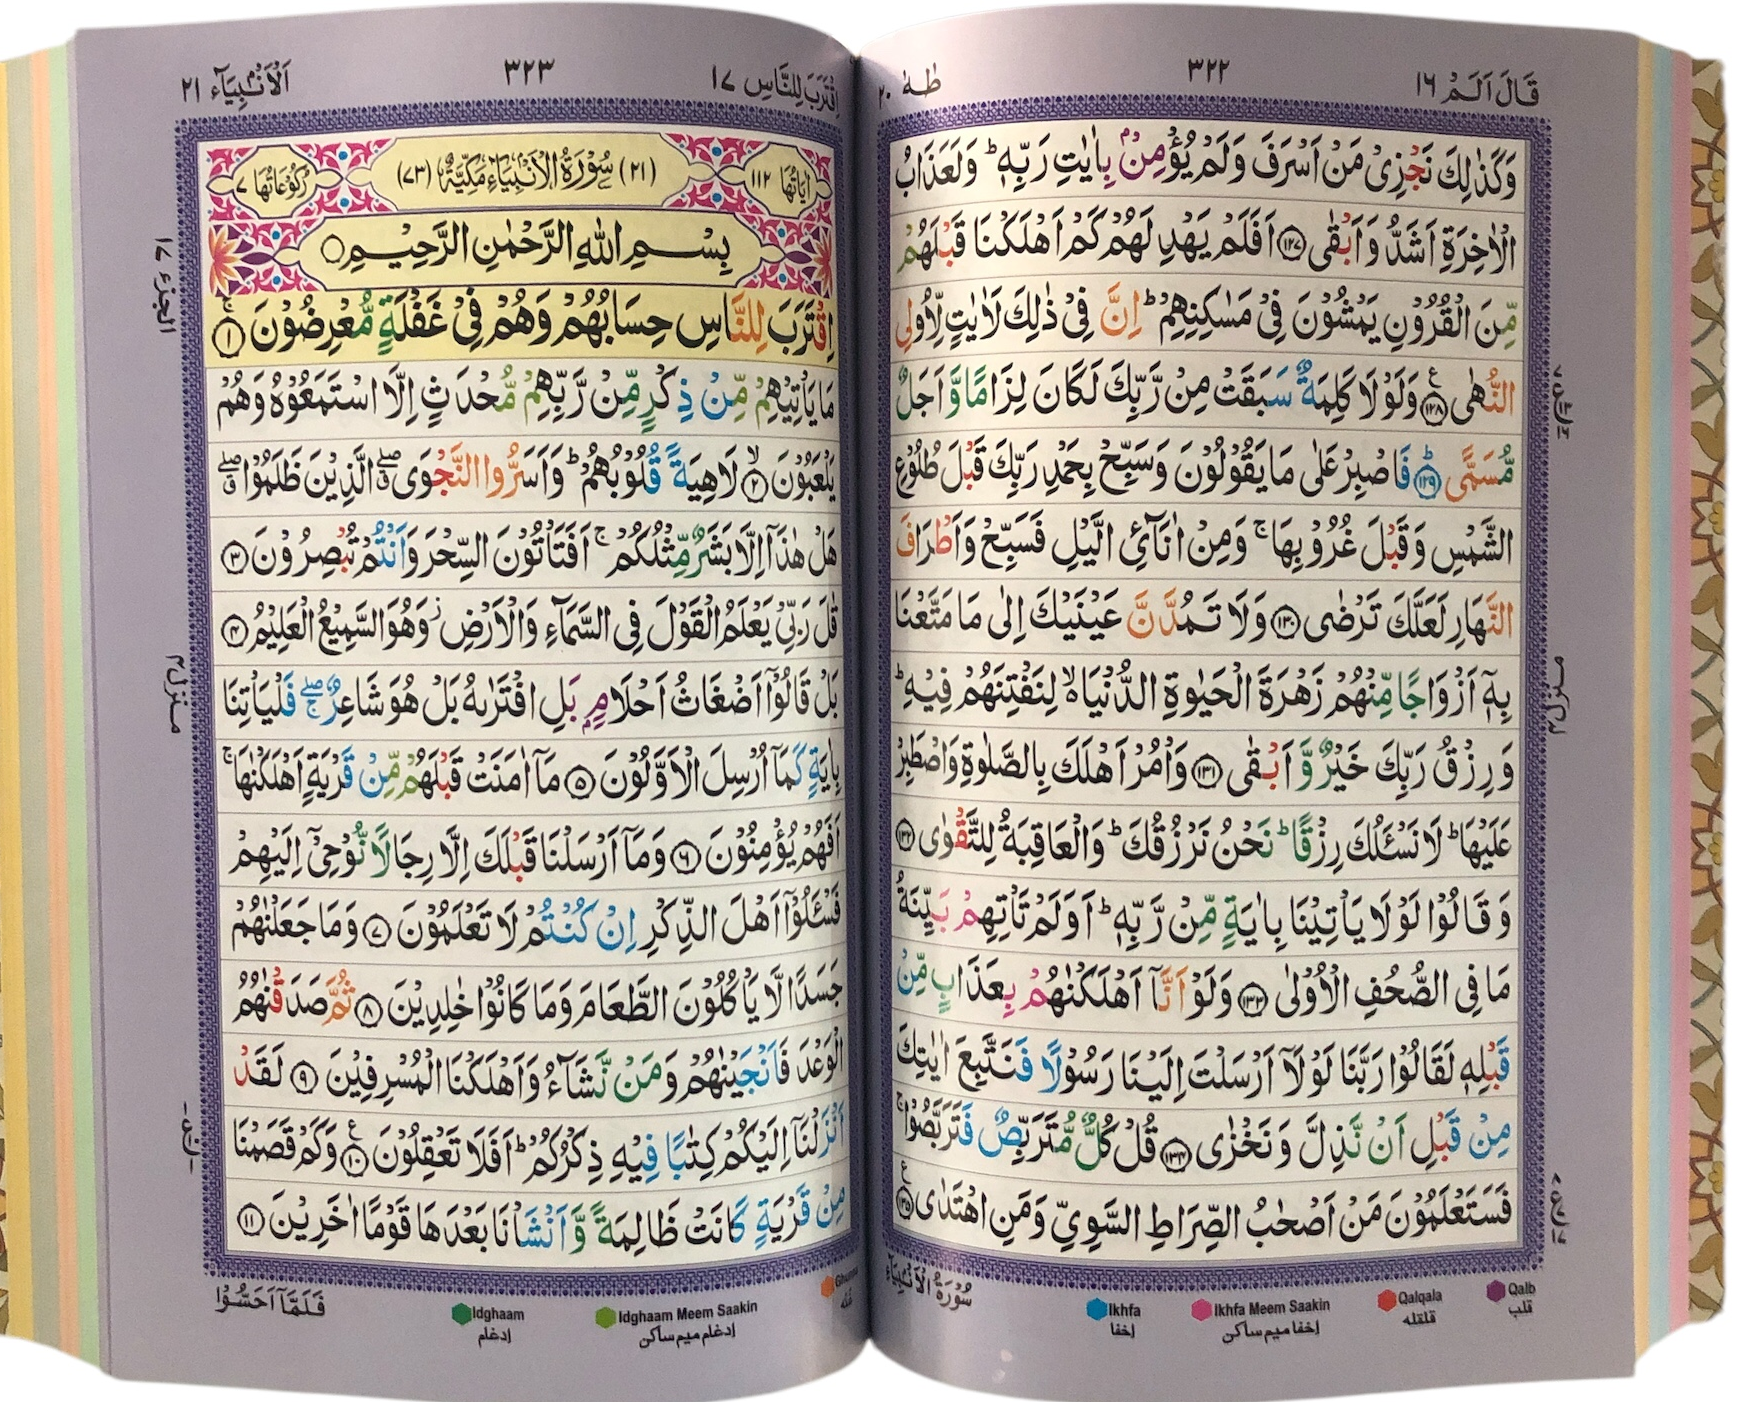 قَالَ اَلَمْ ١٦
٣٢٢
طٰهٰ ٢٠
وَكَذٰلِكَ نَجْزِىْ مَنْ اَسْرَفَ وَلَمْ يُؤْمِنْۢ بِاٰيٰتِ رَبِّهٖ ؕ وَلَعَذَابُ
الْاٰخِرَةِ اَشَدُّ وَاَبْقٰى ﴿١٢٧﴾ اَفَلَمْ يَهْدِ لَهُمْ كَمْ اَهْلَكْنَا قَبْلَهُمْ
مِّنَ الْقُرُوْنِ يَمْشُوْنَ فِىْ مَسٰكِنِهِمْ ؕ اِنَّ فِىْ ذٰلِكَ لَاٰيٰتٍ لِّاُولِى
النُّهٰى ﴿١٢٨﴾ وَلَوْلَا كَلِمَةٌ سَبَقَتْ مِنْ رَّبِّكَ لَكَانَ لِزَامًا وَّاَجَلٌ
مُّسَمًّى ﴿١٢٩﴾ فَاصْبِرْ عَلٰى مَا يَقُوْلُوْنَ وَسَبِّحْ بِحَمْدِ رَبِّكَ قَبْلَ طُلُوْعِ
الشَّمْسِ وَقَبْلَ غُرُوْبِهَا ۚ وَمِنْ اٰنَآئِ الَّيْلِ فَسَبِّحْ وَاَطْرَافَ
النَّهَارِ لَعَلَّكَ تَرْضٰى ﴿١٣٠﴾ وَلَا تَمُدَّنَّ عَيْنَيْكَ اِلٰى مَا مَتَّعْنَا
بِهٖۤ اَزْوَاجًا مِّنْهُمْ زَهْرَةَ الْحَيٰوةِ الدُّنْيَا ۙ لِنَفْتِنَهُمْ فِيْهِ ؕ
وَرِزْقُ رَبِّكَ خَيْرٌ وَّاَبْقٰى ﴿١٣١﴾ وَاْمُرْ اَهْلَكَ بِالصَّلٰوةِ وَاصْطَبِرْ
عَلَيْهَا ؕ لَا نَسْـَٔلُكَ رِزْقًا ؕ نَحْنُ نَرْزُقُكَ ؕ وَالْعَاقِبَةُ لِلتَّقْوٰى ﴿١٣٢﴾
وَقَالُوْا لَوْلَا يَاْتِيْنَا بِاٰيَةٍ مِّنْ رَّبِّهٖ ؕ اَوَلَمْ تَاْتِهِمْ بَيِّنَةُ
مَا فِى الصُّحُفِ الْاُوْلٰى ﴿١٣٣﴾ وَلَوْ اَنَّاۤ اَهْلَكْنٰهُمْ بِعَذَابٍ مِّنْ
قَبْلِهٖ لَقَالُوْا رَبَّنَا لَوْلَاۤ اَرْسَلْتَ اِلَيْنَا رَسُوْلًا فَنَتَّبِعَ اٰيٰتِكَ
مِنْ قَبْلِ اَنْ نَّذِلَّ وَنَخْزٰى ﴿١٣٤﴾ قُلْ كُلٌّ مُّتَرَبِّصٌ فَتَرَبَّصُوْا ۚ
فَسَتَعْلَمُوْنَ مَنْ اَصْحٰبُ الصِّرَاطِ السَّوِىِّ وَمَنِ اهْتَدٰى ﴿١٣٥﴾
منزل٤
سُوْرَةُ الْاَنْۢبِيَآءِ
Ikhfa
اخفا
Ikhfa Meem Saakin
اخفا ميم ساكن
Qalqala
قلقله
Qalb
قلب
اِقْتَرَبَ لِلنَّاسِ ١٧
٣٢٣
اَلْاَنْۢبِيَآء ٢١
اٰيَاتُهَا ١١٢
(٢١) سُوْرَةُ الْاَنْۢبِيَآءِ مَكِّيَّةٌ (٧٣)
رُكُوْعَاتُهَا ٧
بِسْمِ اللّٰهِ الرَّحْمٰنِ الرَّحِيْمِ
اِقْتَرَبَ لِلنَّاسِ حِسَابُهُمْ وَهُمْ فِىْ غَفْلَةٍ مُّعْرِضُوْنَ ۚ﴿١﴾
مَا يَاْتِيْهِمْ مِّنْ ذِكْرٍ مِّنْ رَّبِّهِمْ مُّحْدَثٍ اِلَّا اسْتَمَعُوْهُ وَهُمْ
يَلْعَبُوْنَ ۙ﴿٢﴾ لَاهِيَةً قُلُوْبُهُمْ ؕ وَاَسَرُّوا النَّجْوَى ۖ الَّذِيْنَ ظَلَمُوْا ۖ
هَلْ هٰذَاۤ اِلَّا بَشَرٌ مِّثْلُكُمْ ۚ اَفَتَاْتُوْنَ السِّحْرَ وَاَنْتُمْ تُبْصِرُوْنَ ﴿٣﴾
قٰلَ رَبِّىْ يَعْلَمُ الْقَوْلَ فِى السَّمَآءِ وَالْاَرْضِ ز وَهُوَ السَّمِيْعُ الْعَلِيْمُ ﴿٤﴾
بَلْ قَالُوْۤا اَضْغَاثُ اَحْلَامٍۢ بَلِ افْتَرٰىهُ بَلْ هُوَ شَاعِرٌ ۖۚ فَلْيَاْتِنَا
بِاٰيَةٍ كَمَاۤ اُرْسِلَ الْاَوَّلُوْنَ ﴿٥﴾ مَاۤ اٰمَنَتْ قَبْلَهُمْ مِّنْ قَرْيَةٍ اَهْلَكْنٰهَا ۚ
اَفَهُمْ يُؤْمِنُوْنَ ﴿٦﴾ وَمَاۤ اَرْسَلْنَا قَبْلَكَ اِلَّا رِجَالًا نُّوْحِىْۤ اِلَيْهِمْ
فَسْـَٔلُوْۤا اَهْلَ الذِّكْرِ اِنْ كُنْتُمْ لَا تَعْلَمُوْنَ ﴿٧﴾ وَمَا جَعَلْنٰهُمْ
جَسَدًا لَّا يَاْكُلُوْنَ الطَّعَامَ وَمَا كَانُوْا خٰلِدِيْنَ ﴿٨﴾ ثُمَّ صَدَقْنٰهُمُ
الْوَعْدَ فَاَنْجَيْنٰهُمْ وَمَنْ نَّشَآءُ وَاَهْلَكْنَا الْمُسْرِفِيْنَ ﴿٩﴾ لَقَدْ
اَنْزَلْنَاۤ اِلَيْكُمْ كِتٰبًا فِيْهِ ذِكْرُكُمْ ؕ اَفَلَا تَعْقِلُوْنَ ﴿١٠﴾ وَكَمْ قَصَمْنَا
مِنْ قَرْيَةٍ كَانَتْ ظَالِمَةً وَّاَنْشَاْنَا بَعْدَهَا قَوْمًا اٰخَرِيْنَ ﴿١١﴾
الجزء ١٧
منزل٤
Ghunna
غنه
Idghaam Meem Saakin
ادغام ميم ساكن
Idghaam
ادغام
فَلَمَّاۤ اَحَسُّوْا